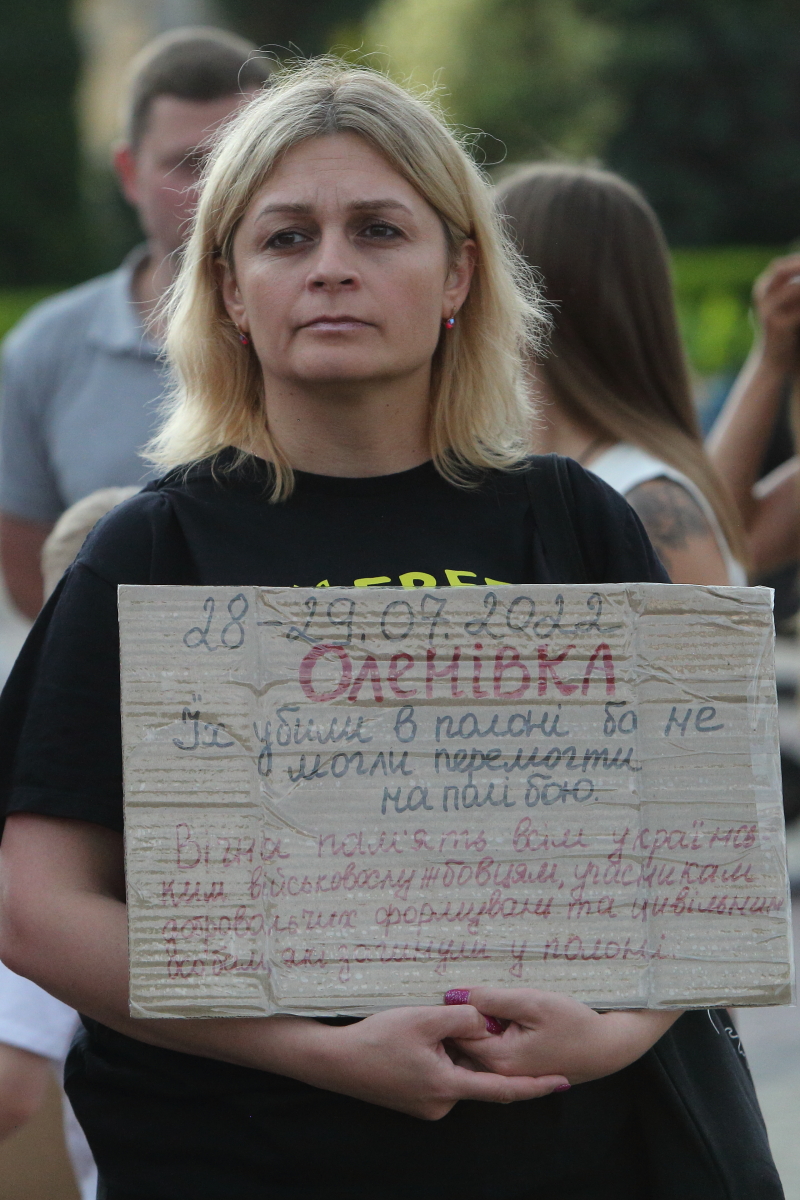 28-29.07.2022
Оленівка
Їх убили в полоні бо не
могли перемогти
на полі бою.
Вічна пам'ять всім українсь
ким військовослужбовцям, учасникам
добровольчих формувань та цивільним
особам, які загинули у полоні.